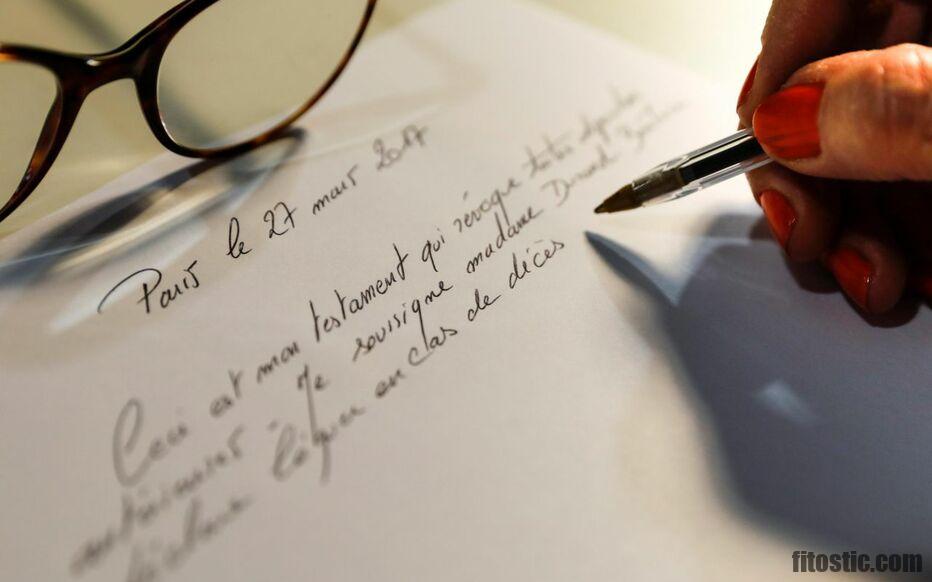 Paris le 27 mars 2017
Ceci est mon testament qui révoque toutes dispositions
antérieures. Je soussigne madame Durand
déclare léguer en cas de décès
fitostic.com